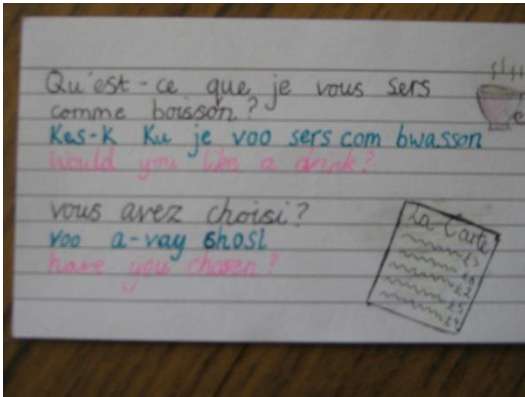 Qu'est-ce que je vous sers
comme boisson?
Kes-K Ku je voo sers com bwasson
Would you like a drink?
vous avez choisi?
voo a-vay shosi
have you chosen?
La Carte